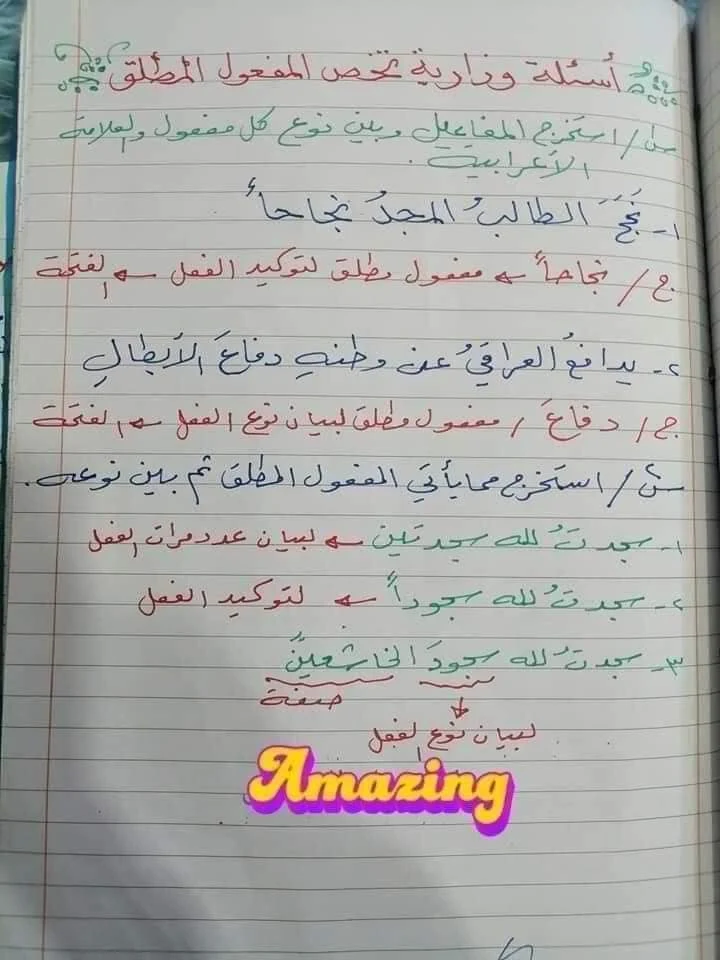 أسئلة وزارية تخص المفعول المطلق
س١/ استخرج المفاعيل وبين نوع كل مفعول والعلامة
الأعرابية.
١- نَجَحَ الطالبُ المجدُ نجاحاً
ج/ نجاحاً ← مفعول مطلق لتوكيد الفعل ← الفتحة
٢- يدافعُ العراقيُ عن وطنهِ دفاعَ الأبطالِ
ج/ دفاعَ / مفعول مطلق لبيان نوع الفعل ← الفتحة
س٢/ استخرج مما يأتي المفعول المطلق ثم بين نوعه.
١- سجدتُ لله سجدتين ← لبيان عدد مرات الفعل
٢- سجدتُ لله سجوداً ← لتوكيد الفعل
٣- سجدتُ لله سجودَ الخاشعينَ
صفة
لبيان نوع الفعل
Amazing